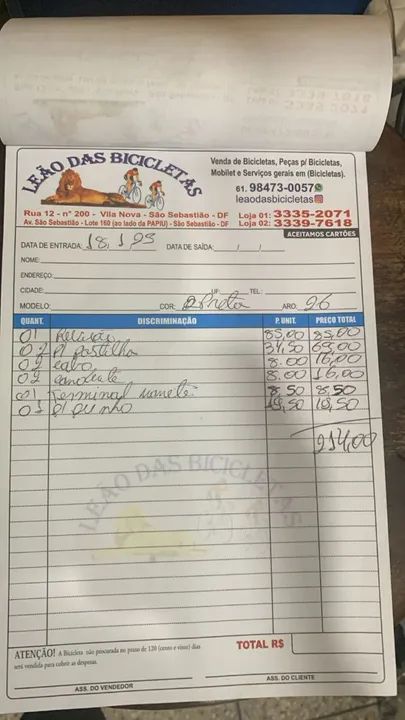 LEÃO DAS BICICLETAS
Venda de Bicicletas, Peças p/ Bicicletas,
Mobilet e Serviços gerais em (Bicicletas).
61. 98473-0057
leaodasbicicletas
Rua 12 - nº 200 - Vila Nova - São Sebastião - DF Loja 01: 3335-2071
Av. São Sebastião - Lote 160 (ao lado da PAPIU) - São Sebastião - DF Loja 02: 3339-7618
ACEITAMOS CARTÕES
DATA DE ENTRADA: DATA DE SAÍDA: / /
NOME:
ENDEREÇO:
CIDADE: UF: TEL:
MODELO: COR: Preta ARO: 26
QUANT. DISCRIMINAÇÃO P. UNIT. PREÇO TOTAL
01 Relação 85,00 85,00
02 P pastilha
02 cabo 8.00 16,00
02 conduite 8.00 16,00
01 Terminal manete 8,50 8,50
01 P punho 18,50 18,50
LEÃO DAS BICICLETAS
ATENÇÃO! A Bicicleta não procurada no prazo de 120 (cento e vinte) dias
será vendida para cobrir as despesas.
TOTAL R$
ASS. DO VENDEDOR ASS. DO CLIENTE